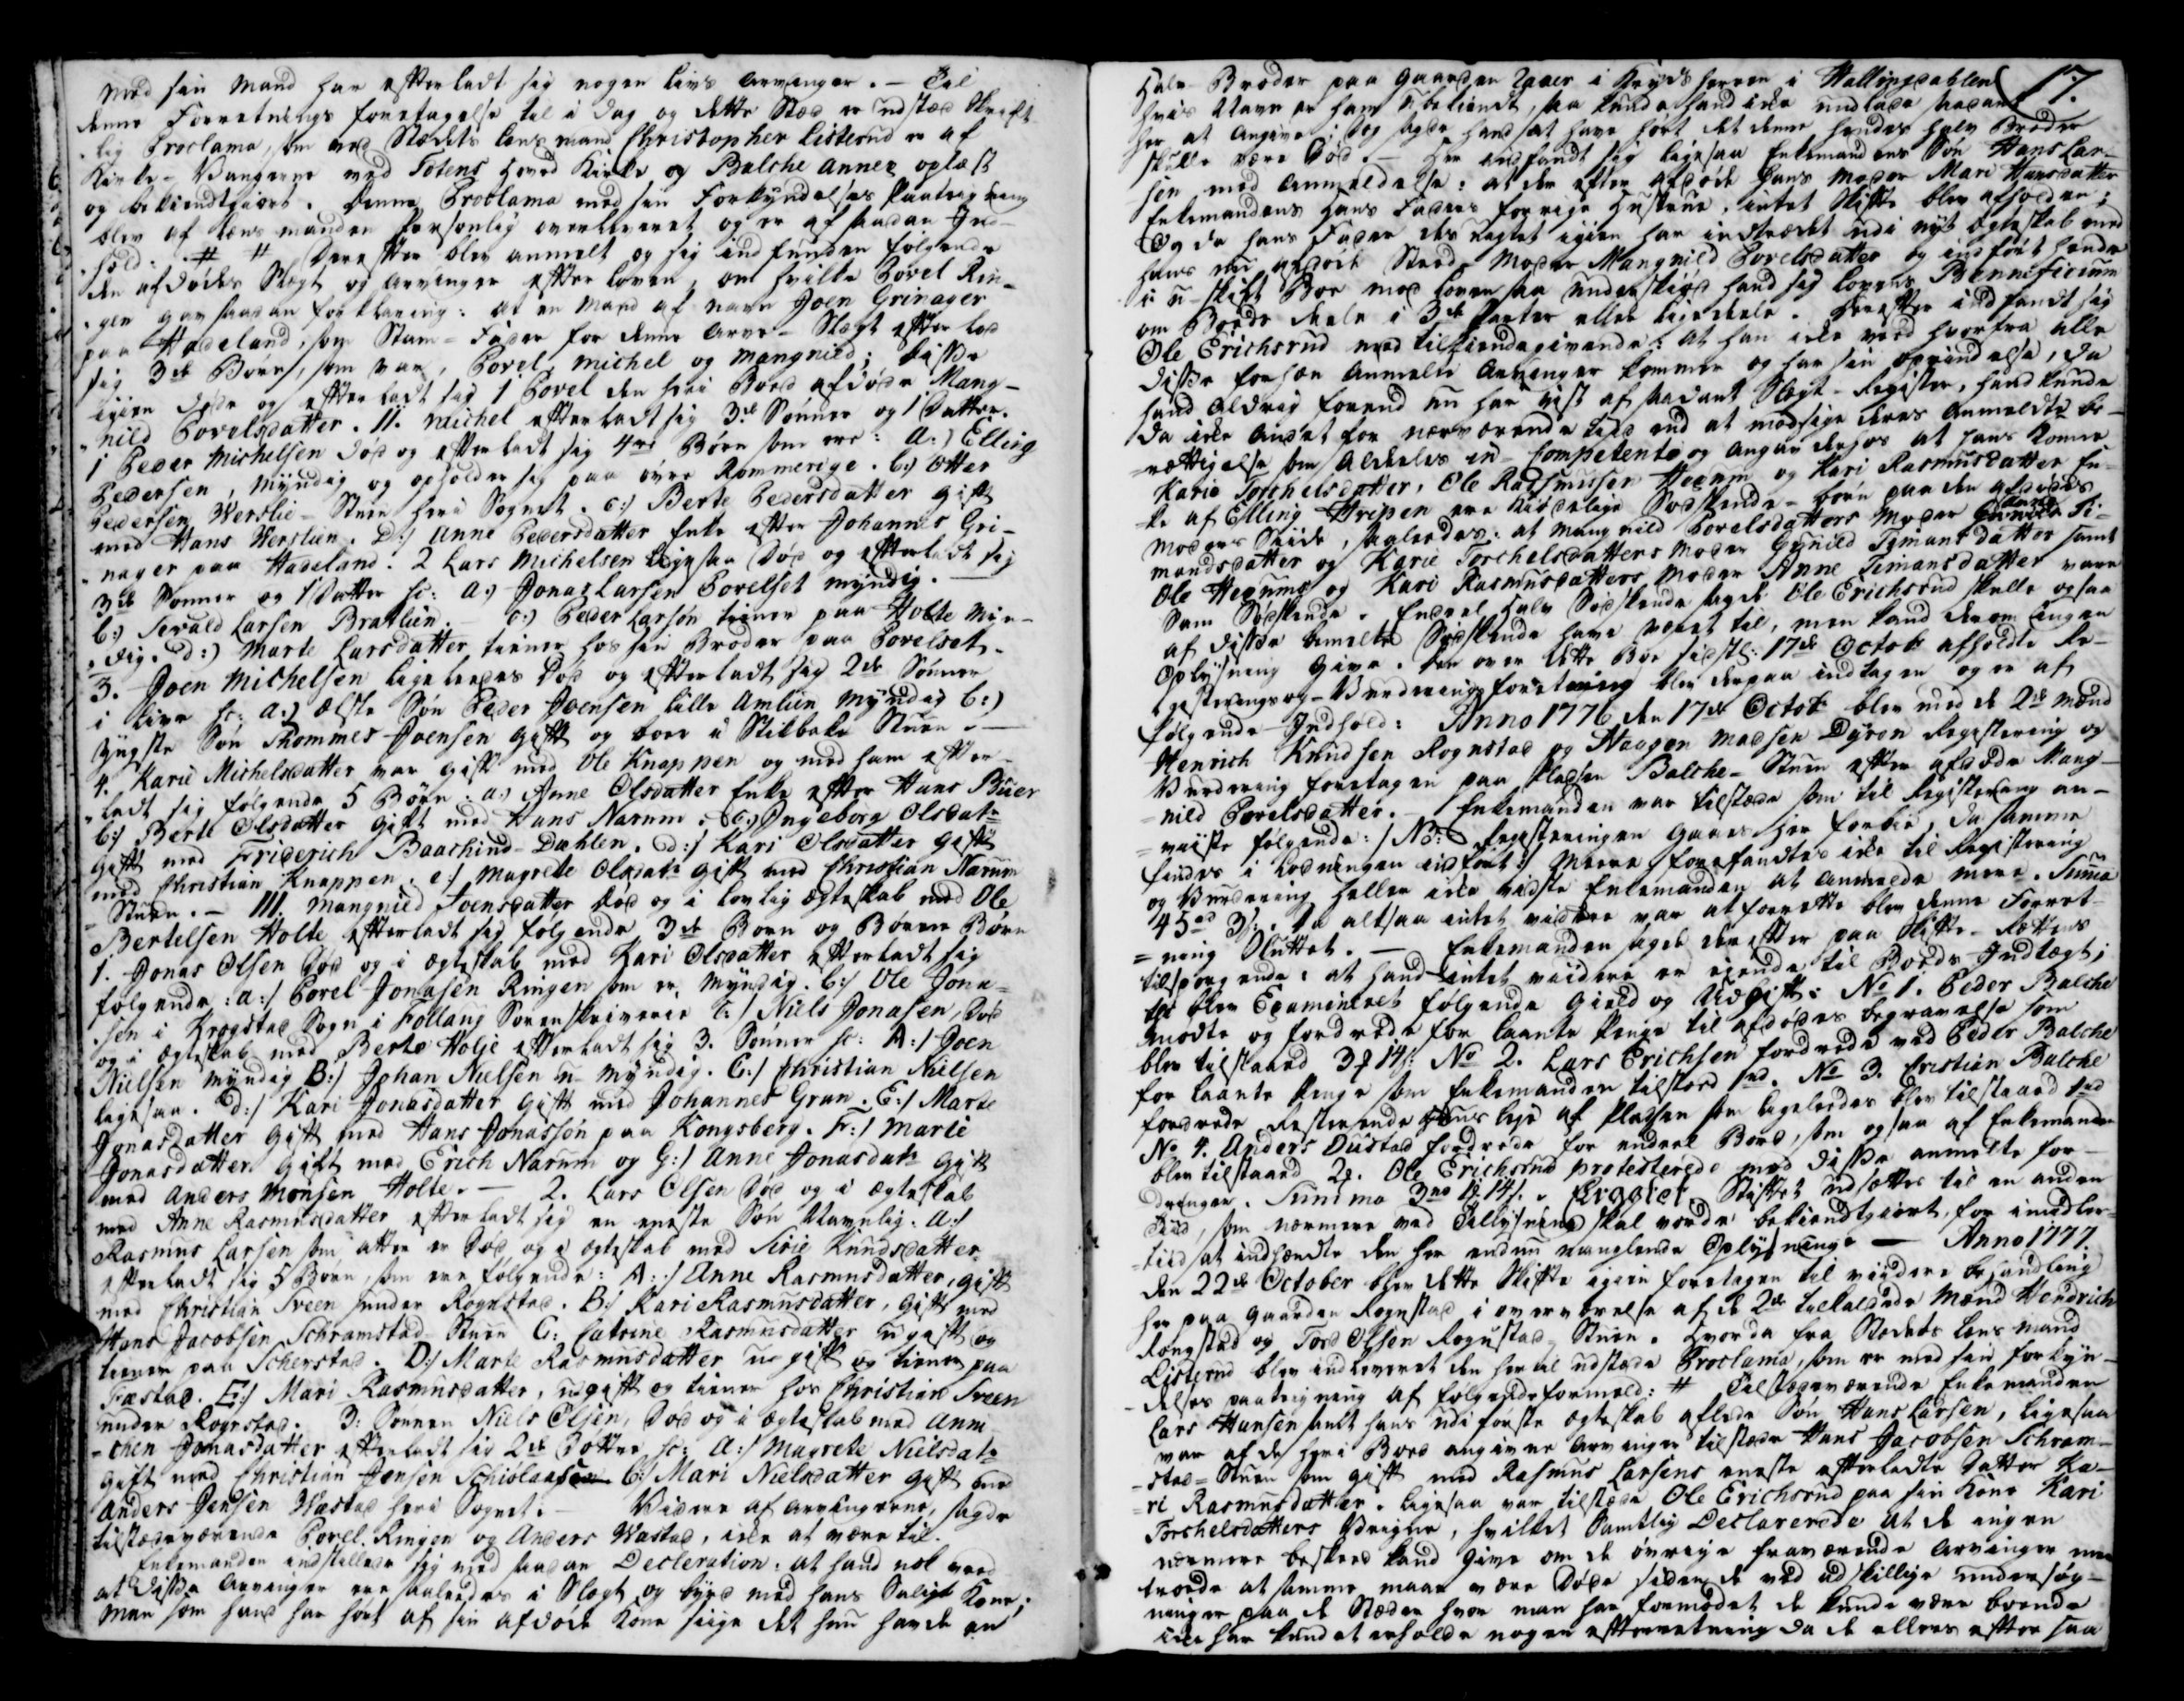 med sin Mand har efterladt sig nogen livs arvinger. — Til
denne Forretnings foretagelse til i dag og dette Stæd er udstæd Skrift-
lig Proclama, som ved Stædets lensmand Christopher Listerud er af
Kirke-Vangerne ved Totens Hoved Kirke og Balche Annex oplæst
og bekiendtgiort. Denne Proclama med sin Forkyndelses paategning
blev af lensmanden personlig overleveret og er af saadan Ind-
hold. # # Derefter blev anmelt og sig indfunden følgende
den afdødes Slegt og arvinger efter loven, om hvilke Povel Rin-
gen gav saadan forklaring: at en Mand af navn Joen Grinager
paa Hadeland, som Stam-Fader for denne Arve-Slegt efterlod
sig 3de Børn, som var, Povel, Michel og Mangnild; disse
igien døde og efterladt sig 1 Povel den heri Boed afdøde Mang-
nild Povelsdatter. 11. Michel efterladt sig 3de Sønner og 1 Datter.
1 Peder Michelsen død og efterladt sig 4re Børn som ere: a:) Elling
Pedersen, Myndig og opholder sig paa øvre Rommerige. b:) Otter
Pedersen Werslie-Stuen heri Sognet. c:) Berte Pedersdatter gift
med Hans Werslien. D:) Anne Pedersdatter Enke efter Johannes Gri-
nager paa Hadeland. 2 Lars Michelsen ligesaa død og efterladt sig
3de Sønner og 1 Datter sc: a:) Jonas Larsen Povelset myndig. —
b:) Sevald Larsen Bratlien. — c:) Peder Larsøn tiener paa Holte myn-
dig. d:) Marte Larsdatter tiener hos sin Broder paa Povelset.
3. Joen Michelsen ligeledes død og efterladt sig 2de Sønner
i live sc: a:) ælste Søn Peder Joensen lille Amlien myndig b:)
yngste Søn Thommes Joensen gift og boer i Stilbeke Stuen. —
4. Karie Michelsdatter var gift med Ole Knappen og med ham efter-
ladt sig følgende 5 Børn: a:) Anne Olsdatter Enke efter Hans Buer
b:) Berte Olsdatter gift med Hans Narum. c:) Ingeborg Olsdatr
gift med Friderich Baachind-Dahlen. d:) Kari Olsdatter gift
med Christian Knappen. e:) Magrete Olsdatr gift med Christian Narum
Stuen. — 111. Mangnild Joensdatter død og i lovlig ægteskab med Ole
Bertelsen Holte efterladt sig følgende 3de Børn og Børne Børn
1. Jonas Olsen død og i ægteskab med Kari Olsdatter efterladt sig
følgende: a:/ Povel Jonasen Ringen som er myndig. b:/ Ole Jona-
sen i Krogstad Sogn i Follaug Sorenskriverie c:/ Niels Jonasen, død
og i ægteskab med Berte Holje efterladt sig 3. Sønner sc: A:/ Joen
Nielsen myndig B:/ Johan Nielsen u-myndig. C:/ Christian Nielsen
ligesaa. d:/ Kari Jonasdatter gift med Johannes Gran. E:/ Marte
Jonasdatter gift med Hans Jonassøn paa Kongsberg. F:/ Marie
Jonasdatter gift med Erich Narum og G:/ Anne Jonasdatr gift
med Anders Monsen Holte. — 2. Lars Olsen død og i ægteskab
med Anne Rasmusdatter efterladt sig en eneste Søn Navnlig. a:/
Rasmus Larsen som atter er død og i ægteskab med Sirie Knudsdatter
efterladt sig 5 Børn, som ere følgende: A:/ Anne Rasmusdatter, gift
med Christian Sveen under Rognstad. B:/ Kari Rasmusdatter, gift med
Hans Jacobsen Schramstad-Stuen C: Catrine Rasmusdatter ugift og
tiener paa Scherstad. D:/ Marte Rasmusdatter ugift og tiener paa
Fæstad. E:/ Mari Rasmusdatter, ugift og tiener hos Christian Sveen
under Rognstad. 3: Sønnen Niels Olsen, død og i ægteskab med Anne
chen Jonasdatter efterladt sig 2de Døttre sc: a:/ Magrete Nielsdatr
gift med Christian Jensen Schiølaasen b:/ Mari Nielsdatter gift med
Anders Jensen Wæstad heri Sognet. — Videre af arvingerne, sagde
tilstædeværende Povel Ringen og Anders Wastad, ikke at være til.
Enkemanden indstillede sig med saadan Decleration: at hand nok veed
at disse Arvinger ere saaledes i Slegt og byrd med hans Salige Kone;
Man som hand har hørt af sin afdøde Kone siige det hun havde en
17.
halv Broder paa Gaarden Zaaer i Kryds herren i Hallingdahlen
hvis Navn er ham Ubekiendt, saa kunde hand ikke undlade saadant
her at angive; dog sagde hand at have hørt det denne hendes halv Broder
skulle være død. — Her indfandt sig ligesaa Enkemandens Søn Hans Lar-
sen med anmeldelse: at der efter afdøde hans Moder Mari Hansdatter
Enkemandens Hans Faders forrige Hustrue, intet Skifte blev afholden;
Og da hans Fader des uagtet igien har indtrædet udi nyt ægteskab med
hans nu afdøde Stæd-Moder Mangnild Povelsdatter og indført hende
i u-skift Boe mod loven saa underskiød hand sig lovens Bennificium
om Boeds deele i 3de Parter eller ligedeele. Herefter indfandt sig
Ole Erichsrud med tilkiendegivende: at han ikke veed hvorfra alle
disse forhen anmelte Arvinger kommer og har sin oprindelse, da
hand aldrig førend nu har vist af saadant Slegt-Register, hand kunde
da ikke andet for nærværende tiid end at modsige deres anmeldte be-
rettigelse som aldeeles in-Competente og angav derhos at hans Konne
Karie Torchelsdatter, Ole Rasmussen Hegum og Kari Rasmusdatter En-
ke af Elling Hvipen ere kiødelige Sødskende-børn paa den afdødes
Moders Siide, saaledes: at Mangnild Povelsdatters Moder Ti-
mandsdatter og Karie Torchelsdatters Moder Gunild Tymansdatter samt
Ole Hegums og Kari Rasmusdatters Moder Anne Timansdatter vare
Sam Sødskende. Endeel halv Sødskende sagde Ole Erichsrud skulle ogsaa
af disse anmelte Sødskende have været til, men kand derom ingen
Oplysning give. Den over dette Boe sidstl: 17de Octob afholdte Re-
gisterings og Vurderings forretning blev derpaa indtagen og er af
følgende Indhold: Anno 1776 den 17de Octob blev med de 2de Mænd
Henrich Knudsen Rognstad og Haagen Madsen Dyren Registering og
Vurdering foretagen paa Pladsen Balche-Stuen efter afdøde Mang-
nild Povelsdatter. — Enkemanden var tilstæde som til Registering an-
viiste følgende: / NB: registeringen gaaes her forbi, da samme
findes i lodningen indført:/ Meere forefandtes ikke til Registering
og Vurdering heller ikke vidste Enkemanden at anmelde mere. Suma
45rd 3/: Da altsaa intet vidre var at forrette blev denne Forret-
ning Sluttet. — Enkemanden sagde derefter paa Skifte-Rettens
tilspørgende: at hand intet viidere er ejende til Boeds Indtægt;
thi blev Examineret følgende Gield og Udgift: No 1. Peder Balche
mødte og fordrede for laante Penge til afdødes begravelse som
blev tilstaaed 3 14/: No 2. Lars Erichsen fordrede ved Peder Balche
for laante Penge som Enkemanden tilstoed 1rd. No 3. Cristian Balche
fordrede Resterende Huus leje af Pladsen som ligeledes blev tilstaaed 1rd
No 4. Anders Dustad fordrede for endeel Boed, som ogsaa af Enkemanden
blev tilstaaed 2. Ole Erichsrud protesterede mod disse anmelte for-
dringer. Summa 3rd 14/. Eragtet Skiftet udsættes til en anden
Tiid, som nærmere ved Tillysning skal vorde bekiendtgiort, for imidler-
tiid at indhændte den her endnu manglende Oplysning. — Anno 1777
den 22de October blev dette Skifte igien foretagen til viidere behandling
her paa Gaarden Rognstad i overværelse af de 2de tilkaldede Mænd Hendrich
Rongstad og Tord Olsen Rognstad-Stuen. Hvorda fra Stædets lensmand
Listerud blev indleveret den hertil udstæde Proclama, som er med sin forkyn-
delses paategning af følgende formeld: # Tilstædeværende Enkemanden
Lars Hansen samt hans udi første ægteskab aflede Søn Hans Larsen, ligesaa
var af de heri Boed angivne Arvinger tilstæde Hans Jacobsen Schram-
stad-Stuen som gift med Rasmus Larsens eneste efterladte Datter Ka-
ri Rasmusdatter. ligesaa var tilstæde Ole Erichsrud paa sin Kone Kari
Torchelsdatters Vegne, hvilket Samtlig Declarerede at de ingen
nærmere beskeed kand give om de øvrige fraværende Arvinger men
troede at samme maae være døde siden de ved adskillige undersøg-
ninger paa de Stæder hvor man har formodet de kunde være boende
ikke har kundet erholde nogen efterretning da de ellers efter saa